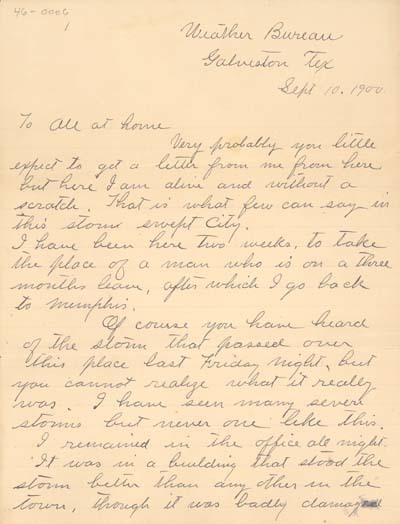 46-0006
1
Weather Bureau
Galveston Tex
Sept 10. 1900
To all at home
Very probably you little
expect to get a letter from me from here
but here I am alive and without a
scratch. That is what few can say in
this storm swept City.
I have been here two weeks, to take
the place of a man who is on a three
months leave, after which I go back
to Memphis.
Of course you have heard
of the storm that passed over
this place last Friday night, but
you cannot realize what it really
was. I have seen many severe
storms but never one like this.
I remained in the office all night.
It was in a building that stood the
storm better than any other in the
town, though it was badly damaged